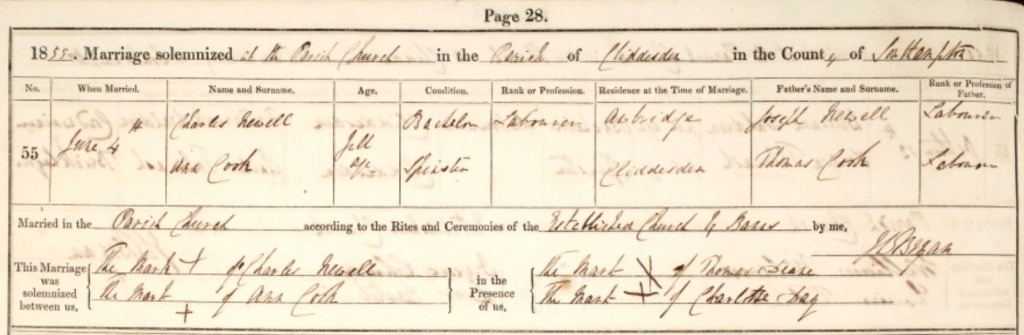 Page 28.
1855. Marriage solemnized at the Parish Church in the Parish of Cliddesden in the County of Southampton
No. When Married. Name and Surname. Age. Condition. Rank or Profession. Residence at the Time of Marriage. Father's Name and Surname. Rank or Profession of Father.
55 June 4th Charles Newell Full Bachelor Labourer Awbridge Joseph Newell Labourer
Ann Cook Age Spinster Cliddesden Thomas Cook Labourer
Married in the Parish Church according to the Rites and Ceremonies of the Established Church by Banns by me,
This Marriage was solemnized between us, The Mark + of Charles Newell in the Presence of us, The Mark X of Thomas
The Mark + of Ann Cook The Mark + of Charlotte Day